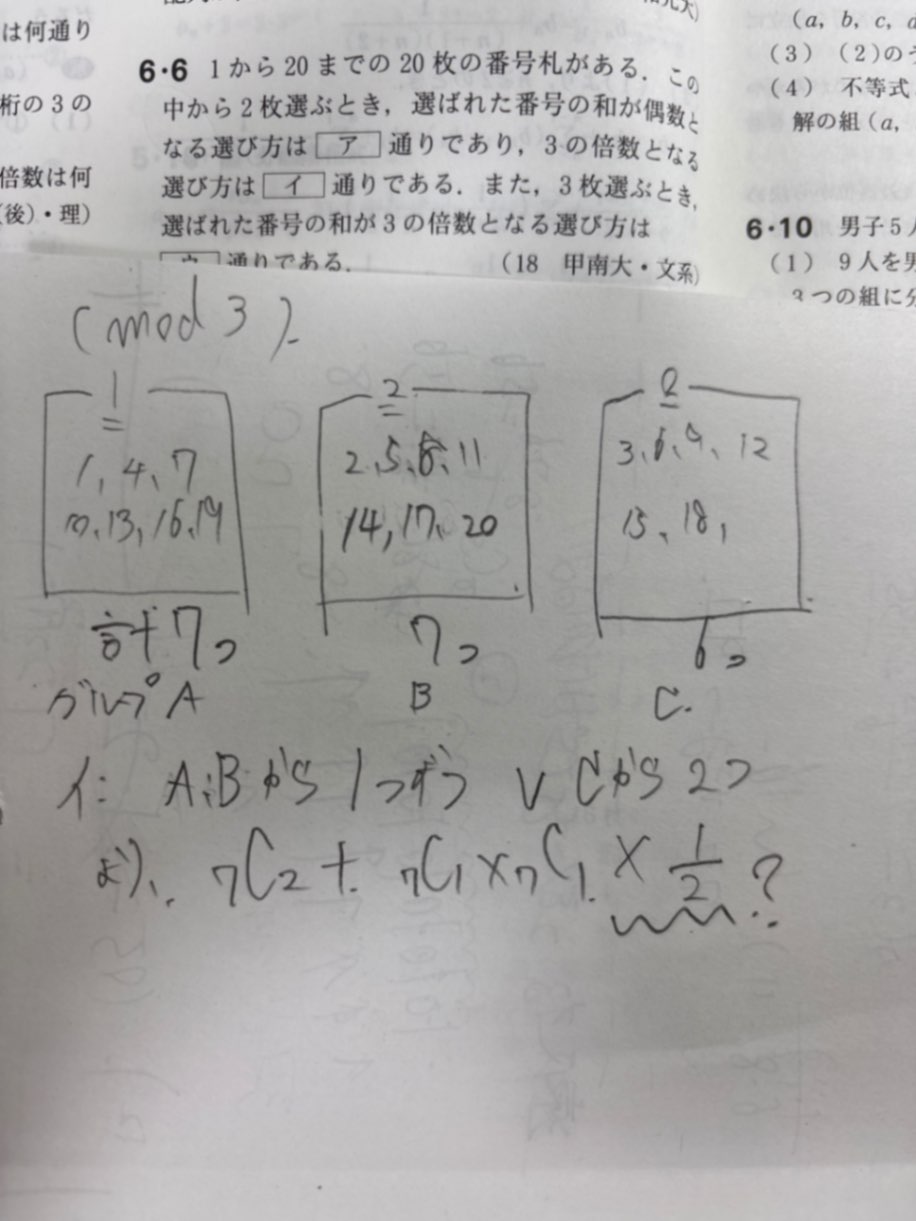 は何通り
桁の3の
倍数は何
(後)・理)
6・6 1から20までの20枚の番号札がある.この
中から2枚選ぶとき,選ばれた番号の和が偶数と
なる選び方は ア 通りであり,3の倍数となる
選び方は イ 通りである.また,3枚選ぶとき,
選ばれた番号の和が3の倍数となる選び方は
ウ 通りである. (18 甲南大・文系)
(3) (2)のう
(4) 不等式
解の組(a,
6・10 男子5人
(1) 9人を男
3つの組に分
(mod 3).
1 2 0
1, 4, 7
10, 13, 16, 19
計7つ
グループA
2, 5, 8, 11
14, 17, 20
7つ
B
3, 6, 9, 12
15, 18,
6つ
C.
イ: A,Bから1つずつ ∨ Cから2つ
より、 ₇C₂ + ₇C₁×₇C₁ × 1/2 ?